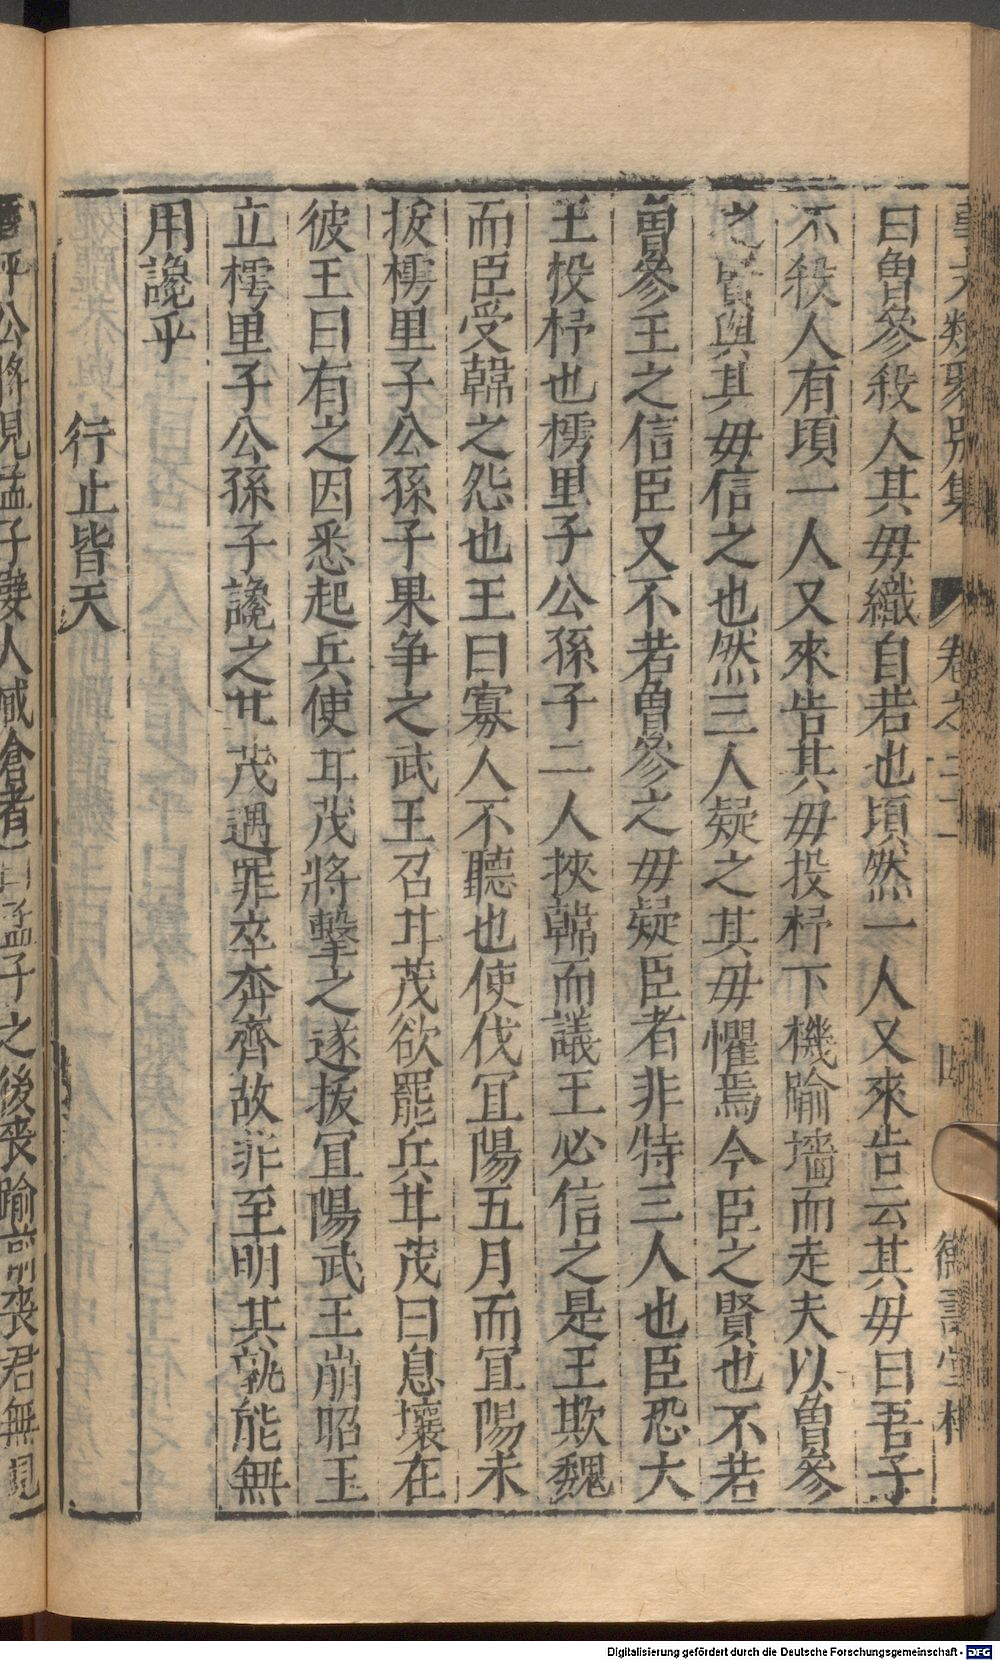 曰魯參殺人其毋織自若也頃然一人又來告云其毋曰吾子
不殺人有頃一人又來告其毋投杼下機踰墻而走夫以魯參
之賢與其毋信之也然三人疑之其毋懼焉今臣之賢也不若
魯參王之信臣又不若魯參之毋疑臣者非特三人也臣恐大
王投杼也樗里子公孫子二人挾韓而議王必信之是王欺魏
而臣受韓之怨也王曰寡人不聽也使伐冝陽五月而冝陽未
拔樗里子公孫子果争之武王召甘茂欲罷兵甘茂曰息壤在
彼王曰有之因悉起兵使甘茂將擊之遂拔冝陽武王崩昭王
立樗里子公孫子讒之甘茂遇罪卒奔齊故非至明其孰能無
用讒乎
行止皆天
平公將見孟子嬖人臧倉者曰孟子之後喪踰前喪君無見
Digitalisierung gefördert durch die Deutsche Forschungsgemeinschaft - DFG